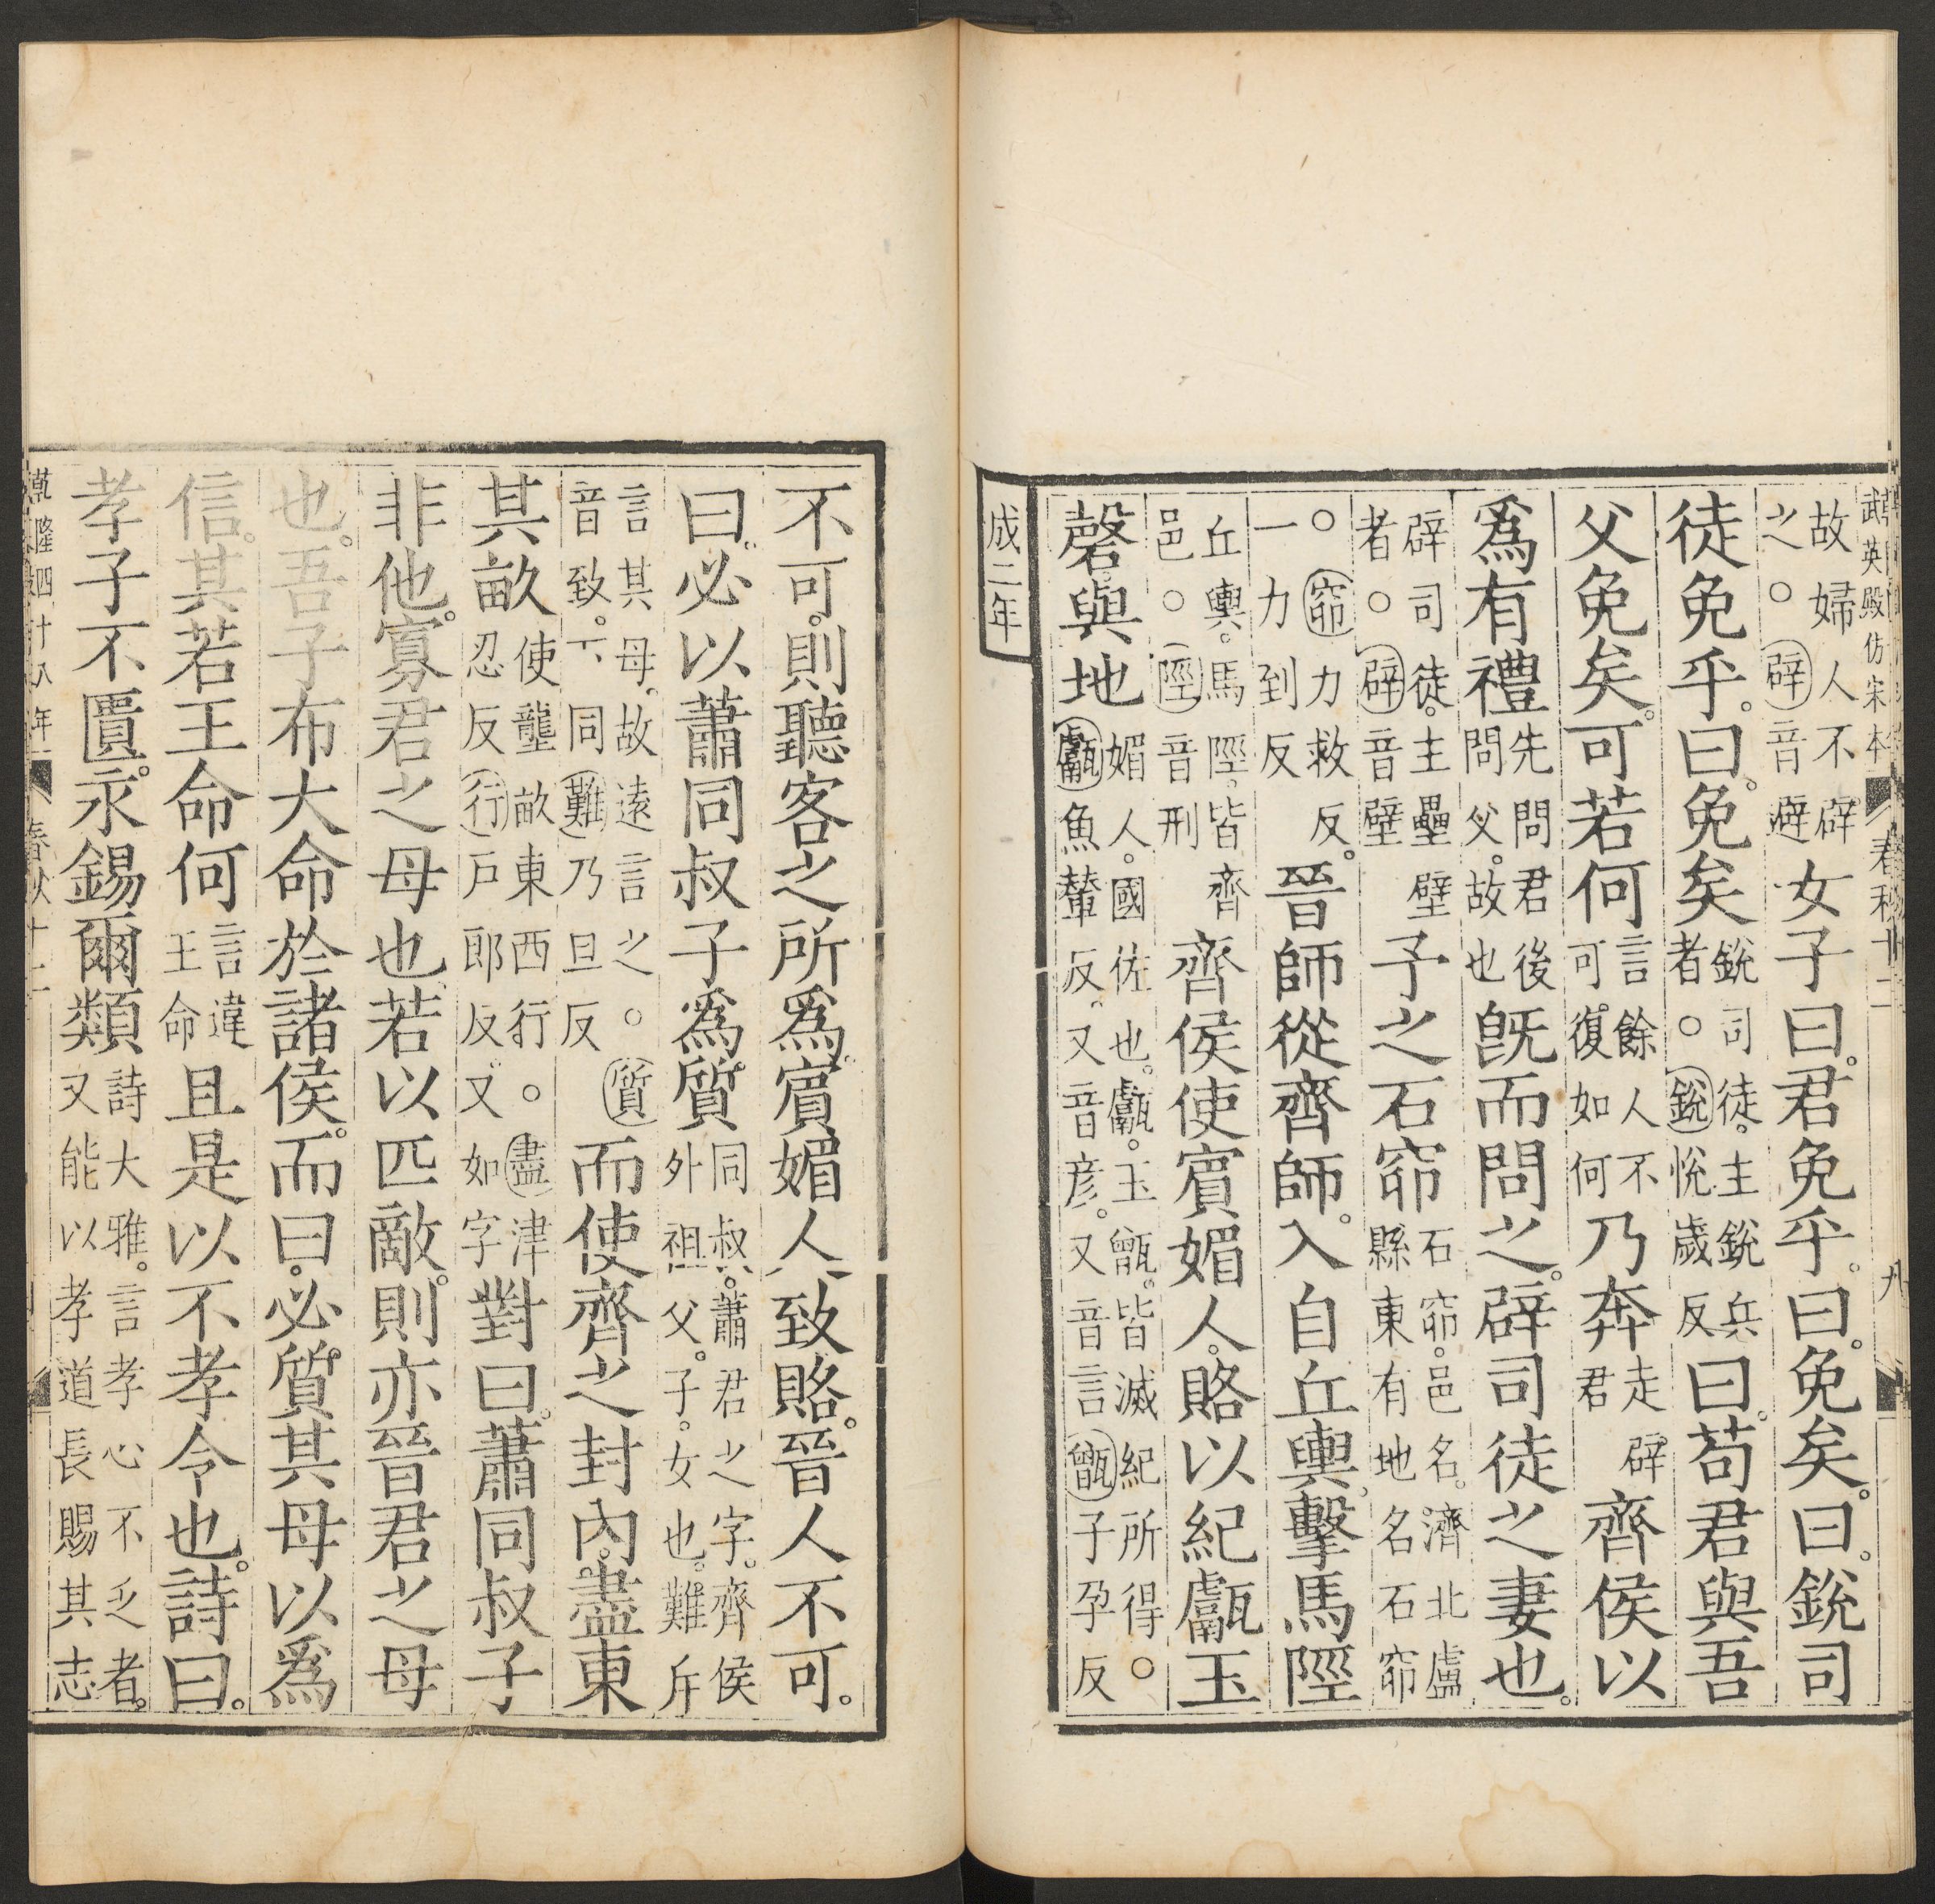 武英殿仿宋本 春秋十二 九
故婦人不辟之○辟音避女子曰。君免乎。曰。免矣。曰。銳司
徒免乎。曰。免矣銳司徒。主銳兵者○銳悅歲反曰。苟君與吾
父免矣。可若何言餘人不可。復如何乃奔走辟君齊侯以
爲有禮先問君後問父。故也旣而問之。辟司徒之妻也。
辟司徒。主壘壁者○辟音壁予之石窌石窌。邑名。濟北盧縣東有地名石窌
○窌力救反。一力到反晉師從齊師。入自丘輿。擊馬陘
丘輿。馬陘。皆齊邑○陘音刑齊侯使賓媚人。賂以紀甗玉
磬。與地媚人。國佐也。甗。玉甑。皆滅紀所得○甗魚輦反。又音彦。又音言甑子孕反
成二年
不可。則聽客之所爲。賓媚人致賂。晉人不可。
曰。必以蕭同叔子爲質同叔。蕭君之字。齊侯外祖父。子。女也。難斥
言其母。故遠言之○質音致。下同難乃旦反而使齊之封內。盡東
其畝使壟畝東西行○盡津忍反行戶郎反。又如字對曰。蕭同叔子
非他。寡君之母也。若以匹敵。則亦晉君之母
也。吾子布大命於諸侯。而曰。必質其母以爲
信。其若王命何言違王命且是以不孝令也。詩曰。
孝子不匱。永錫爾類詩大雅。言孝心不乏者。又能以孝道長賜其志
乾隆四十八年 春秋十二